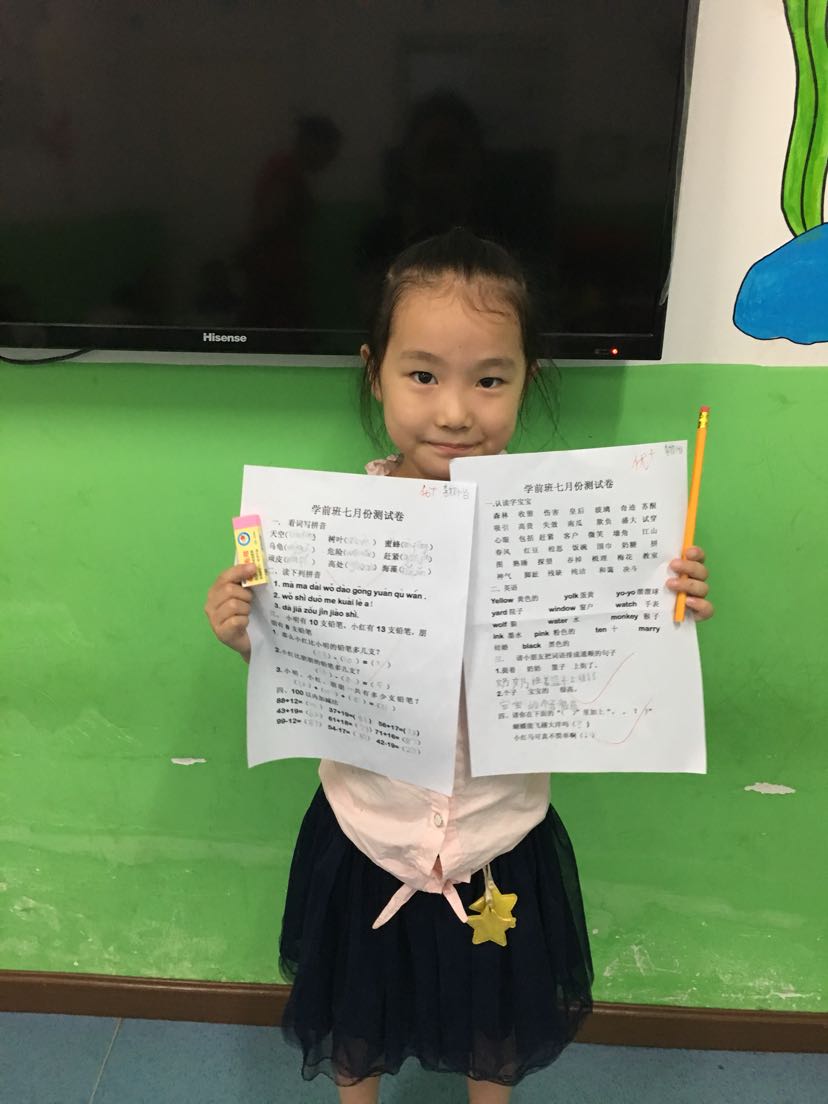 Hisense
优+
学前班七月份测试卷
一、看词写拼音
天空( ) 树叶( ) 蜜蜂( )
乌龟( ) 危险( ) 赶紧( )
顽皮( ) 高处( ) 海藻( )
二、读下列拼音
1. mā ma dài wǒ dào gōng yuán qù wán .
2. wǒ shì duō me kuài lè a !
3. dà jiā zǒu jìn jiào shì.
三、小明有 10 支铅笔,小红有 13 支铅笔,丽
丽有 8 支铅笔
1. 那么小红比小明的铅笔多几支?
2.小红比丽丽的铅笔多几支?
3.小明、小红、丽丽一共有多少支铅笔?
四、100 以内加减法
88+12=( ) 37+19=( ) 56+17=( )
43+19=( ) 61+18=( ) 71+16=( )
99-12=( ) 54-17= ( ) 42-19=( )
优+
学前班七月份测试卷
一.认读字宝宝
森林 收割 伤害 皇后 玻璃 奇迹 苏醒
吸引 高贵 失败 南瓜 欺负 盛大 试穿
心脏 包括 赶紧 客户 微笑 墙角 江山
春风 红豆 相思 饭碗 围巾 奶糖 拼
图 熟睡 探望 吞掉 梅花 教室
神气 脚趾 残缺 纯洁 和蔼 决斗
二.英语
Yellow 黄色的 yolk 蛋黄 yo-yo 溜溜球
yard 院子 window 窗户 watch 手表
wolf 狼 water 水 monkey 猴子
ink 墨水 pink 粉色的 ten 十 marry
结婚 black 黑色的
三. 请小朋友把词语排成通顺的句子
1.提着 奶奶 篮子 上街了。
奶奶提着篮子上街了
2.个子 宝宝的 很高。
宝宝的个子很高
四、请你在下面的“( )”里加上“。 , ? !”
蝴蝶能飞越大洋吗(?)
小红马可真不简单啊(!)